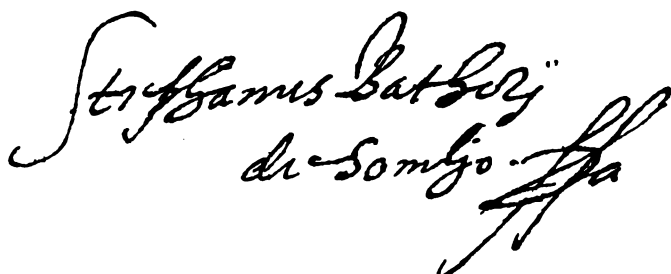 Stephanus Bathorÿ
de Somlyo